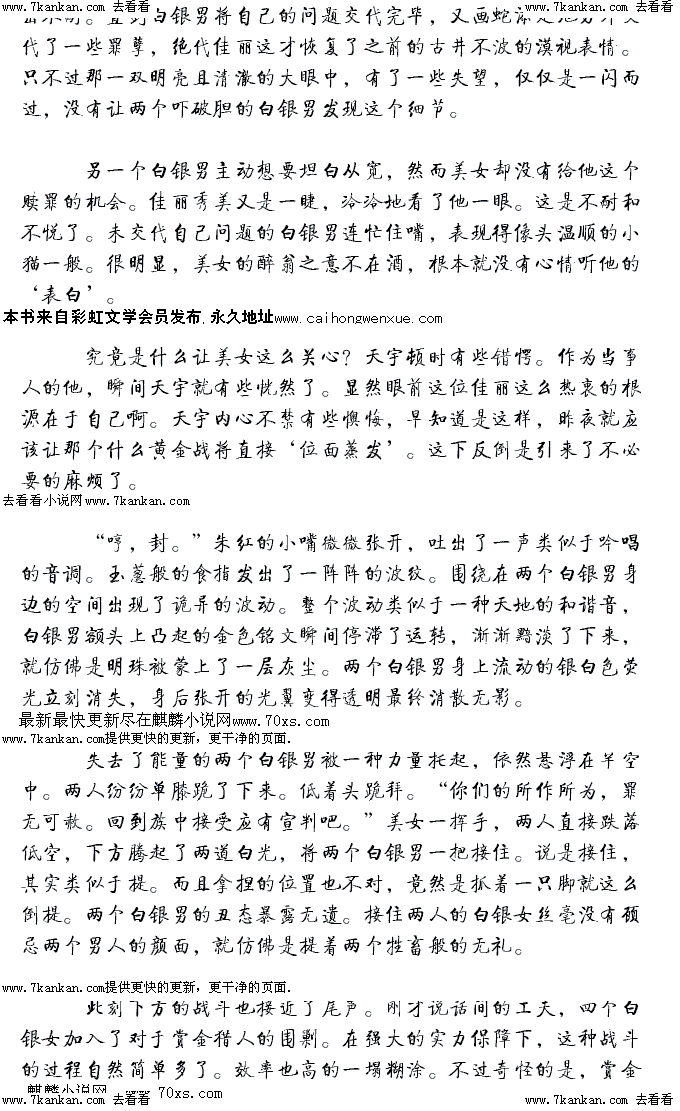 www.7kankan.com 去看看 www.7kankan.com 去看看 www.7kankan.com 去看看
白银男将自己的问题交代完毕，又画蛇添足
代了一些罪孽，绝代佳丽这才恢复了之前的古井不波的漠视表情。
只不过那一双明亮且清澈的大眼中，有了一些失望，仅仅是一闪而
过，没有让两个吓破胆的白银男发现这个细节。
另一个白银男主动想要坦白从宽，然而美女却没有给他这个
赎罪的机会。佳丽秀美又是一睫，冷冷地看了他一眼。这是不耐和
不悦了。未交代自己问题的白银男连忙住嘴，表现得像头温顺的小
猫一般。很明显，美女的醉翁之意不在酒，根本就没有心情听他的
‘表白’。
本书来自彩虹文学会员发布,永久地址www.caihongwenxue.com
究竟是什么让美女这么关心？天宇顿时有些错愕。作为当事
人的他，瞬间天宇就有些恍然了。显然眼前这位佳丽这么热衷的根
源在于自己啊。天宇内心不禁有些懊悔，早知道是这样，昨夜就应
该让那个什么黄金战将直接‘位面蒸发’。这下反倒是引来了不必
要的麻烦了。
去看看小说网www.7kankan.com
“哼，封。”朱红的小嘴微微张开，吐出了一声类似于吟唱
的音调。玉葱般的食指发出了一阵阵的波纹。围绕在两个白银男身
边的空间出现了诡异的波动。整个波动类似于一种天地的和谐音，
白银男额头上凸起的金色铭文瞬间停滞了运转，渐渐黯淡了下来，
就仿佛是明珠被蒙上了一层灰尘。两个白银男身上流动的银白色荧
光立刻消失，身后张开的光翼变得透明最终消散无影。
最新最快更新尽在麒麟小说网www.70xs.com
www.7kankan.com提供更快的更新，更干净的页面.
失去了能量的两个白银男被一种力量托起，依然悬浮在半空
中。两人纷纷单膝跪了下来。低着头跪拜。“你们的所作所为，罪
无可赦。回到族中接受应有宣判吧。”美女一挥手，两人直接跌落
低空，下方腾起了两道白光，将两个白银男一把接住。说是接住，
其实类似于提。而且拿捏的位置也不对，竟然是抓着一只脚就这么
倒提。两个白银男的丑态暴露无遗。接住两人的白银女丝毫没有顾
忌两个男人的颜面，就仿佛是提着两个牲畜般的无礼。
www.7kankan.com提供更快的更新，更干净的页面.
此刻下方的战斗也接近了尾声。刚才说话间的工夫，四个白
银女加入了对于赏金猎人的围剿。在强大的实力保障下，这种战斗
的过程自然简单多了。效率也高的一塌糊涂。不过奇怪的是，赏金
麒麟小说网 www.70xs.com
www.7kankan.com 去看看 www.7kankan.com 去看看 www.7kankan.com 去看看